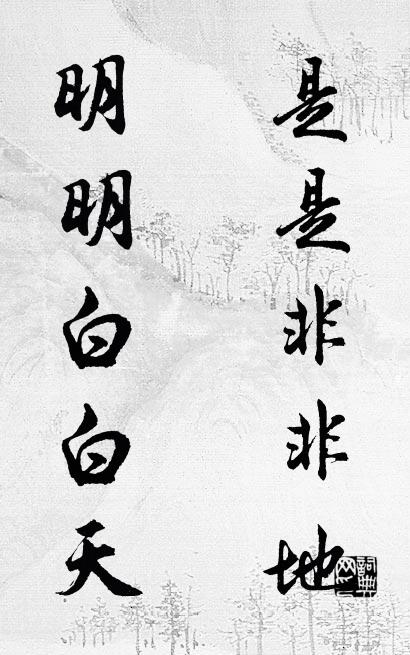 是是非非地
明明白白天